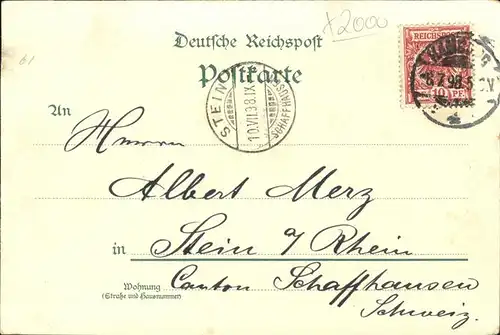 x2000
61
Deutsche Reichspost
Postkarte
REICHSPOST
10 PF
STEIN
10.VII.98.IX
SCHAFFHAUSEN
An
Herrn
Albert Merz
in Stein a/Rhein
Wohnung
(Straße und Hausnummer)
Canton Schaffhausen
Schweiz.